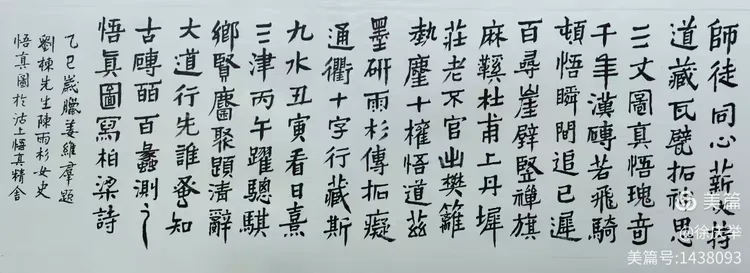 師徒同心持
道藏瓦甓拓神思
三丈圖真悟瑰奇
千年漢磚若飛騎
頓悟瞬間追已遲
百尋崖壁豎禪旗
麻鞵杜甫上丹墀
莊老不官出樊籬
執麈十權悟道茲
墨研雨杉傳拓癡
通衢十字行藏斯
九水丑寅看日熹
三津丙午躍驄騏
鄉賢麕聚題清辭
大道行先誰蚤知
古磚皕百蠡測之
悟真圖寫柏梁詩
乙巳歲臘姜維群題
劉棟先生陳雨杉女史
悟真圖於沽上悟真精舍
美篇
@徐庆举
美篇号:1438093